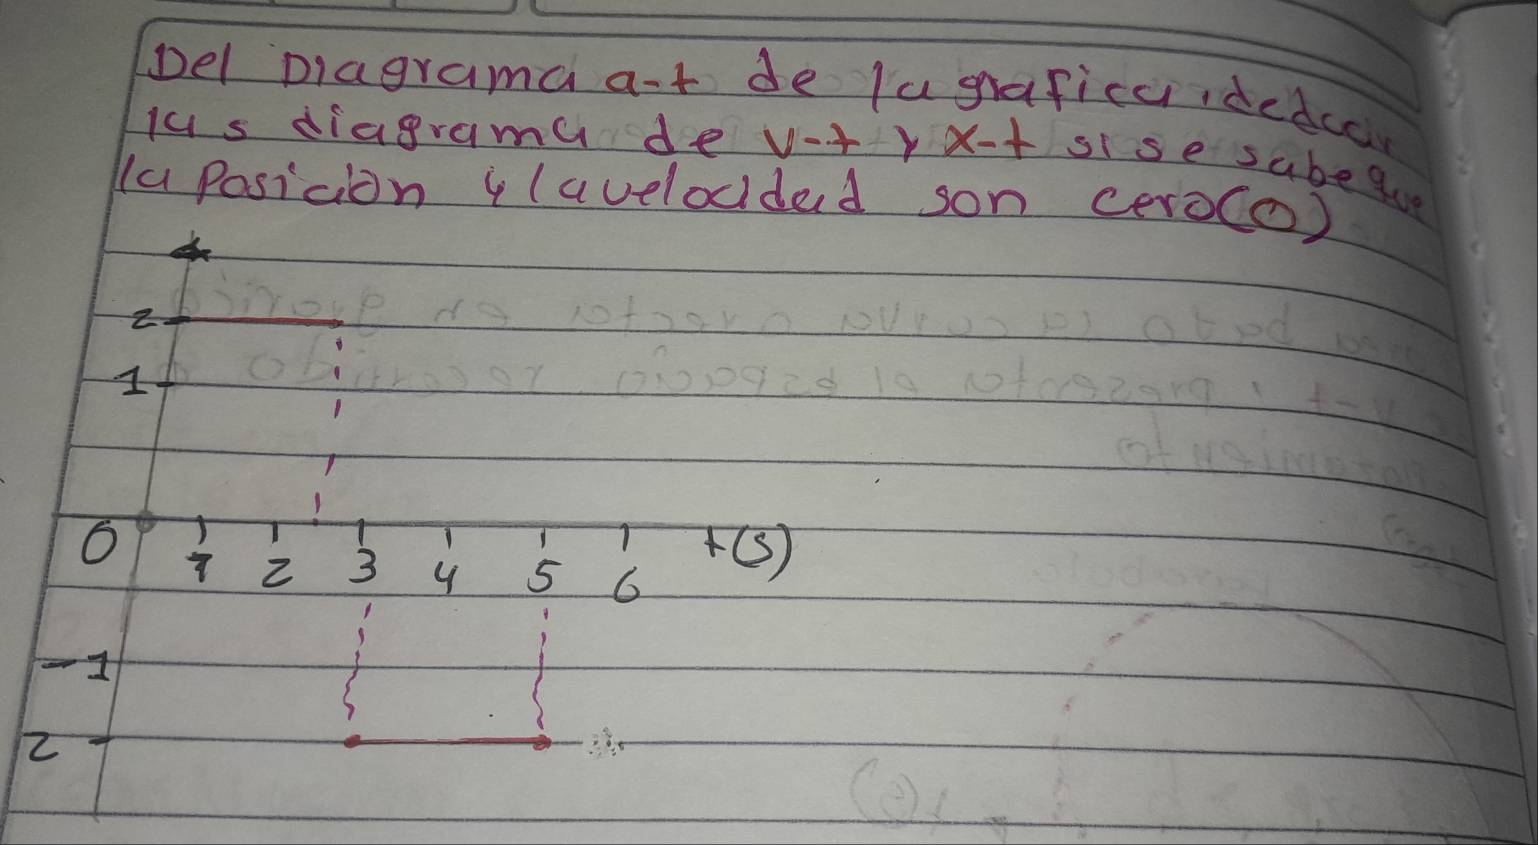 Del Diagrama a-t de la grafica, dedcair
las diagrama de v-t y x-t si se sabe que
la Posición y la velocidad son cero(0)
2
1
0 1 2 3 4 5 6 t(s)
-1
2